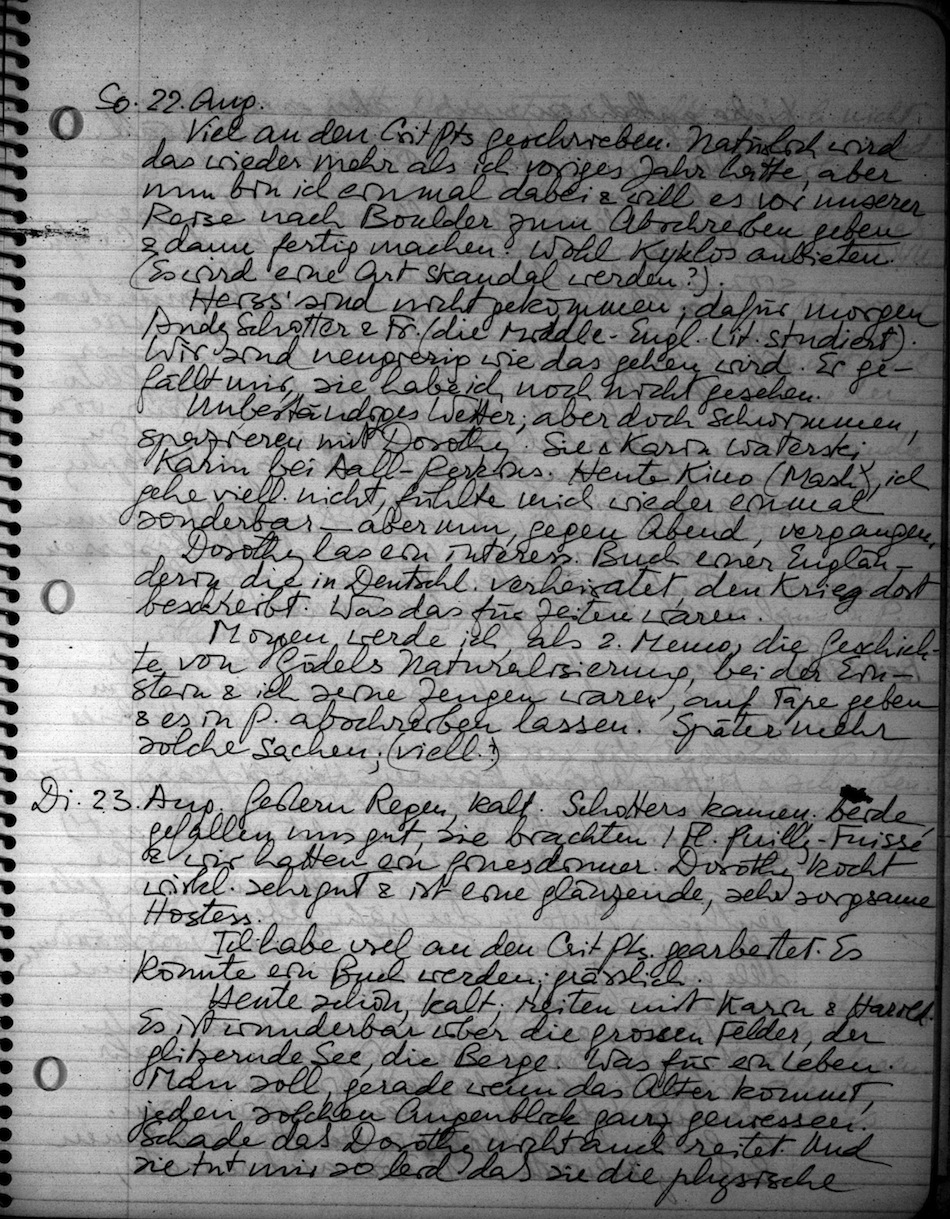 So. 22. Aug.
Viel an den Crit Pts geschrieben. Natürlich wird
das wieder mehr als ich voriges Jahr hatte, aber
nun bin ich einmal dabei & will es vor unserer
Reise nach Boulder zum Abschreiben geben
& dann fertig machen. Wohl Kyklos anbieten.
(Es wird eine Art Skandal werden?).
sind nicht gekommen, dafür morgen
Andy Schotter & Fr. (die Middle-Engl. Lit. studiert).
Wir sind neugierig wie das gehen wird. Er ge-
fällt mir, sie habe ich noch nicht gesehen.
Unbeständiges Wetter, aber doch schwimmen,
spazieren mit Dorothy. Sie & Karin waterski
Karin bei Heute Kino (Mash), ich
gehe viell. nicht, fühlte mich wieder einmal
sonderbar – aber nun, gegen Abend, vergangen.
Dorothy las ein interess. Buch einer Englän-
derin, die in Deutschl. verheiratet, den Krieg dort
beschreibt. Was das für Zeiten waren.
Morgen werde ich, als 2. Memo, die Geschich-
te von Gödels Naturalisierung, bei der Ein-
stein & ich seine Zeugen waren, auf Tape geben
& es in P. abschreiben lassen. Später mehr
solche Sachen, (viell.?)
Di. 23. Aug. Gestern Regen, kalt. Schotters kamen. beide
gefallen uns gut, sie brachten 1 Fl. Puilly-Fuissé
& wir hatten ein Dorothy kocht
wirkl. sehr gut & ist eine glänzende, sehr sorgsame
Hostess.
Ich habe viel an den Crit Pts. gearbeitet. Es
könnte ein Buch werden; grässlich.
Heute schön, kalt; reiten mit Karin & Harold.
Es ist wunderbar über die grossen Felder, der
glitzernde See, die Berge. Was für ein Leben.
Man soll, gerade wenn das Alter kommt,
jeden solchen Augenblick ganz geniessen.
Schade daß Dorothy nicht auch reitet. Und
sie tut mir so leid daß sie die physische